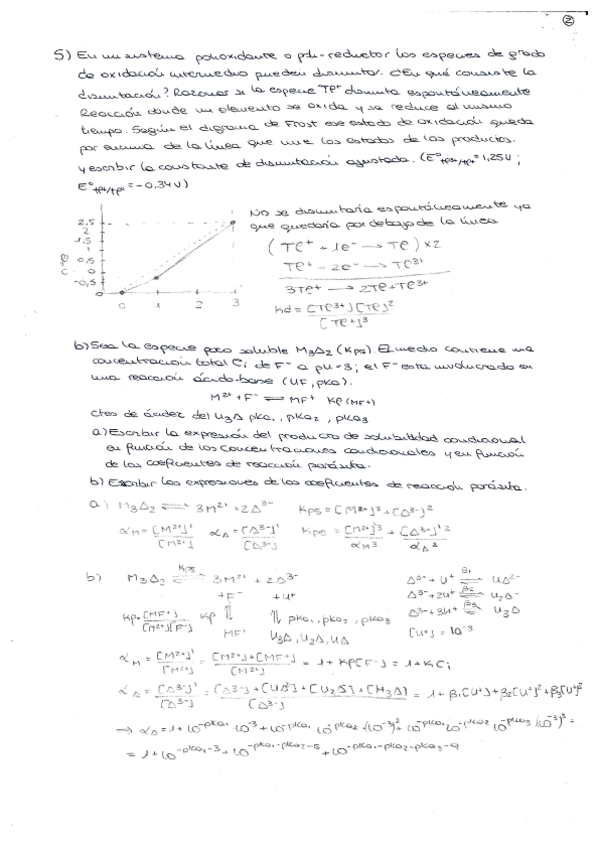 ②
5) En un sistema polioxidante o poli-reductor las especies de grado
de oxidación intermedio pueden dismutar. ¿En qué consiste la
dismutación? Razonar si la especie Tl⁺ dismuta espontáneamente
Reacción donde un elemento se oxida y se reduce al mismo
tiempo. Según el digrama de Frost ese estado de oxidación queda
por encima de la línea que une los estados de los productos.
y escribir la constante de dismutación ajustada. (E°Tl³⁺/Tl⁺ = 1,25V ;
E°Tl⁺/Tl⁰ = -0,34V)
No se dismutaría espontáneamente ya
que quedaría por debajo de la línea
2,5
2
1,5
1
0,5
0
-0,5
0 1 2 3
(Tl⁺ + 1e⁻ → Tl) × 2
Tl⁺ - 2e⁻ → Tl³⁺
3Tl⁺ → 2Tl + Tl³⁺
Kd = [Tl³⁺][Tl]² / [Tl⁺]³
b) Sea la especie poco soluble M₃A₂ (Kps). El medio contiene una
concentración total Ci de F⁻ a pH = 3; el F⁻ esta involucrado en
una reacción ácido-base (HF, pKa).
M²⁺ + F⁻ ⇌ MF⁺ KF (MF⁺)
ctes de ácidez del H₃A pKa₁, pKa₂, pKa₃
a) Escribir la expresión del producto de solubilidad condicional
en función de las concentraciones condicionales y en función
de los coeficientes de reacción parásita.
b) Escribir las expresiones de los coeficientes de reacción parásita.
a) M₃A₂ ⇌ 3M²⁺ + 2A³⁻ Kps = [M²⁺]³ · [A³⁻]²
αM = [M²⁺]' / [M²⁺] αA = [A³⁻]' / [A³⁻] Kps = [M²⁺]'³ / αM³ · [A³⁻]'² / αA³
b) M₃A₂ ⇌ Kps 3M²⁺ + 2A³⁻ A³⁻ + H⁺ ⇌ β₁ HA²⁻
+F⁻ +H⁺ A³⁻ + 2H⁺ ⇌ β₂ H₂A⁻
KF = [MF⁺] / [M²⁺][F⁻] KF ⇅ ⇅ pKa₁, pKa₂, pKa₃ A³⁻ + 3H⁺ ⇌ β₃ H₃A
MF⁺ H₃A, H₂A, HA [H⁺] = 10⁻³
αM = [M²⁺]' / [M²⁺] = [M²⁺] + [MF⁺] / [M²⁺] = 1 + KF[F⁻] = 1 + KCi
αA = [A³⁻]' / [A³⁻] = [A³⁻] + [HA²⁻] + [H₂A⁻] + [H₃A] / [A³⁻] = 1 + β₁[H⁺] + β₂[H⁺]² + β₃[H⁺]³
→ αA = 1 + 10^-pKa₁ · 10⁻³ + 10^-pKa₁ · 10^-pKa₂ · (10⁻³)² + 10^-pKa₁ 10^-pKa₂ 10^-pKa₃ (10⁻³)³ =
= 1 + 10^-pKa₁-3 + 10^-pKa₁-pKa₂-6 + 10^-pKa₁-pKa₂-pKa₃-9